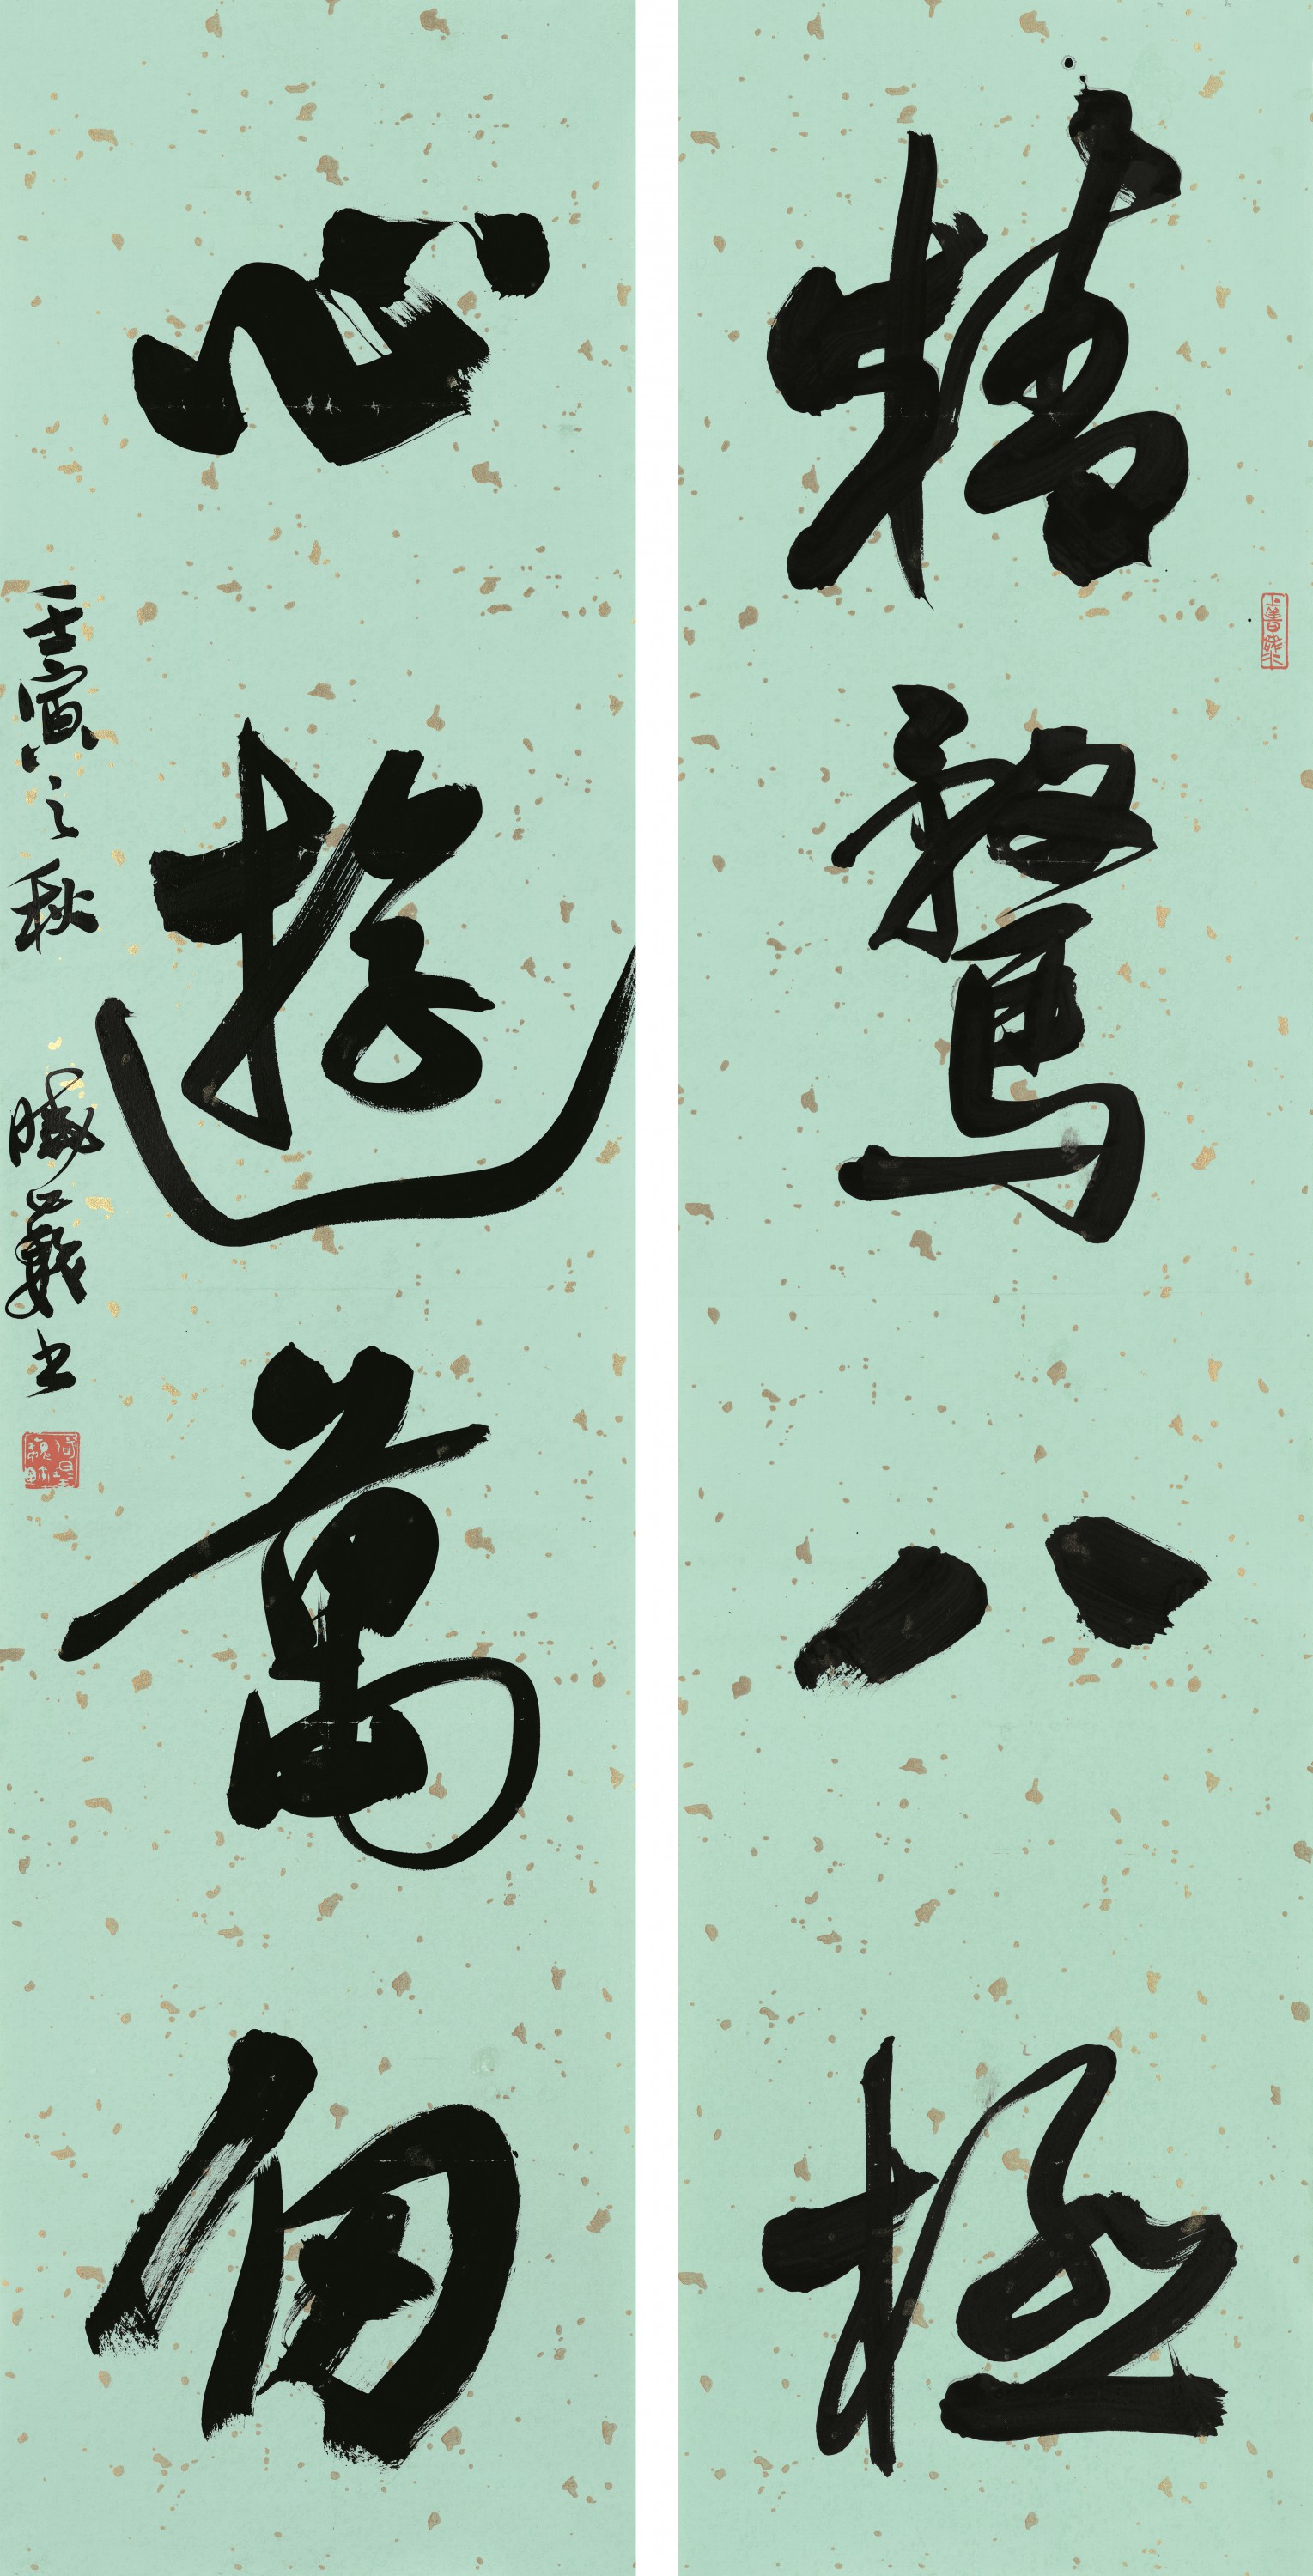 精騖八極
心遊萬仞
壬寅之秋
勝義書